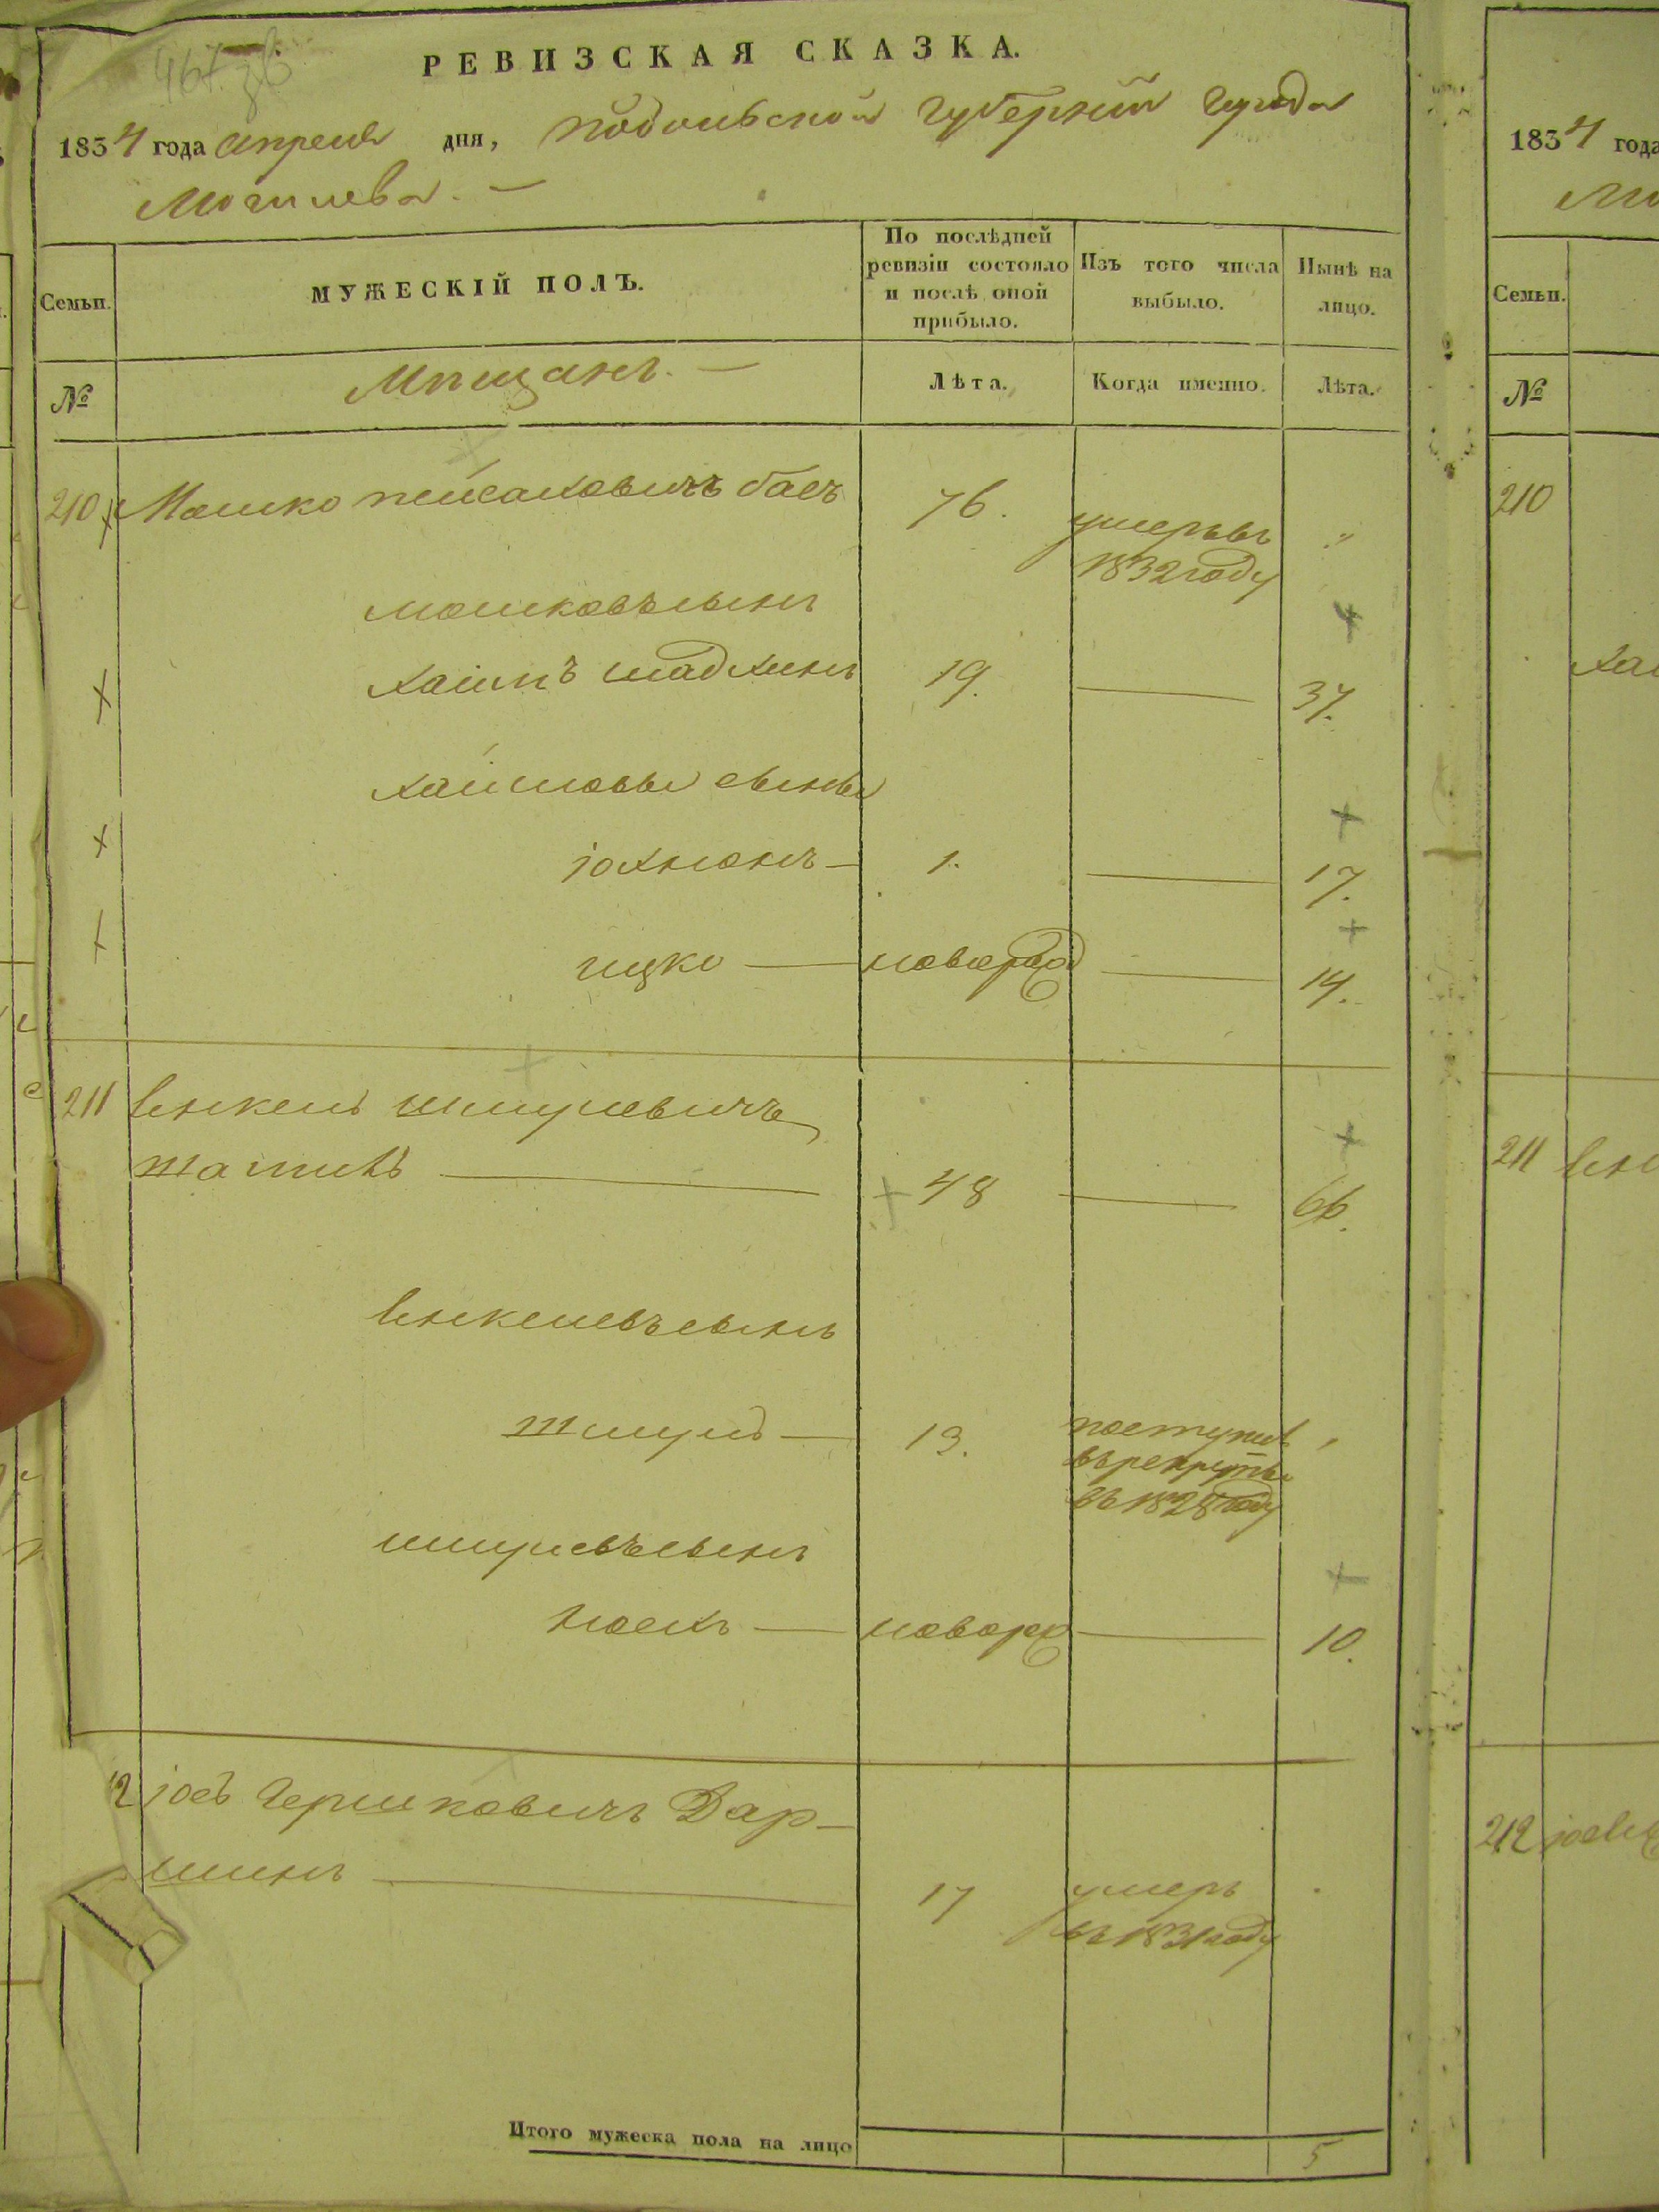 467 зв
РЕВИЗСКАЯ СКАЗКА.
1834 года апреля дня, Подольской губернии города
Могилева. —
Семьи.
МУЖЕСКІЙ ПОЛЪ.
По послѣдней
ревизіи состояло
и послѣ оной
прибыло.
Изъ того числа
выбыло.
Нынѣ на
лицо.
№
Мѣщанъ. —
Лѣта.
Когда именно.
Лѣта.
210 Мошко пейсаховичъ баеъ 76. умеръ въ "
1832 году
мошковъ сынъ
хаимъ шадхинъ 19. — 37.
хаимовы сыновья
іохнонъ — 1. — 17.
ицко — новород — 14.
211 Енкель шмулевичъ
— 48 — 66.
Енкелевъ сынъ
шмуль — 13. поступилъ
въ рекруты
въ 1828 году
шмулевъ сынъ
— новорж — 10.
12 іось Гершковичъ Дар-
шинъ — 17 умеръ
въ 1831 году
Итого мужеска пола на лицо 5
1834 года
Семьи.
№
210
211
212